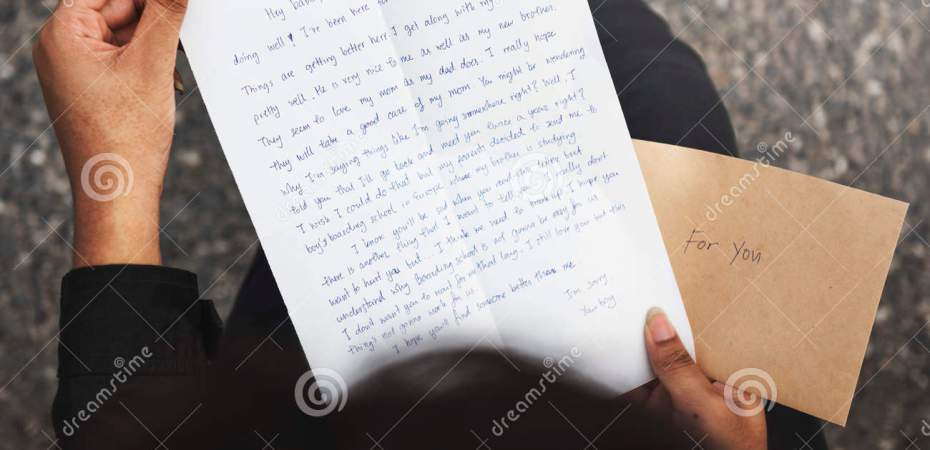 Hey babe, I've been here
doing well! Things are getting better here. I get along with my
pretty well. He is very nice to me as well as my new brother.
They seem to love my mom as my dad does. I really hope
they will take a good care of my mom. You might be wondering
why I'm saying things like I'm going somewhere right? Well, I
told you that I'll go back and meet you twice a year, right?
I wish I could do that but my parents decided to send me to
boy's boarding school in Europe where my brother is studying
I know you'll be sad when you read this letter but
there is another thing that I want to tell you. I really don't
want to hurt you but... I think we need to break up. I hope you
understand why. Boarding school is not gonna be easy for us
I don't want you to wait for me that long. I still love you but this
thing's not gonna work for us.
I hope you'll find someone better than me
I'm sorry
Your boy
For You
dreamstime
dreamstime
dreamstime
dreamstime